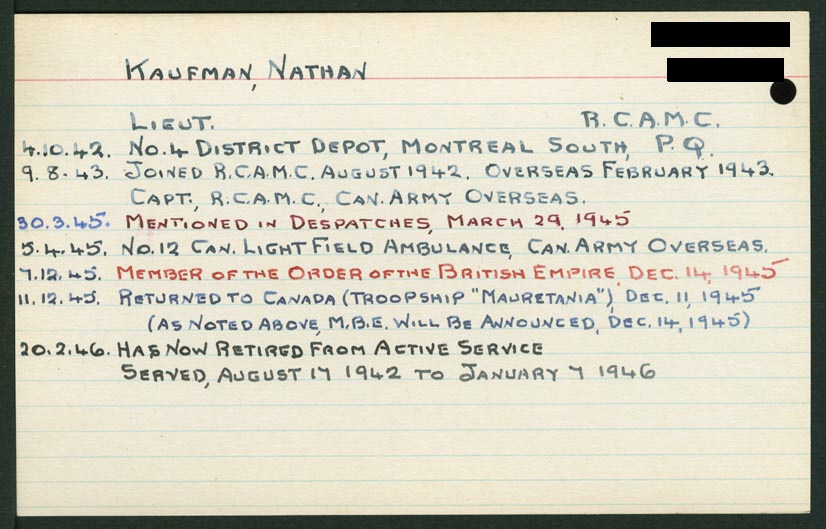 KAUFMAN, NATHAN
LIEUT. R.C.A.M.C.
4.10.42. NO.4 DISTRICT DEPOT, MONTREAL SOUTH, P.Q.
9.8.43. JOINED R.C.A.M.C. AUGUST 1942. OVERSEAS FEBRUARY 1943.
CAPT., R.C.A.M.C., CAN. ARMY OVERSEAS.
30.3.45. MENTIONED IN DESPATCHES, MARCH 29, 1945
5.4.45. NO.12 CAN. LIGHT FIELD AMBULANCE, CAN. ARMY OVERSEAS.
7.12.45. MEMBER OF THE ORDER OF THE BRITISH EMPIRE, DEC. 14, 1945
11.12.45. RETURNED TO CANADA (TROOPSHIP "MAURETANIA"), DEC. 11, 1945
(AS NOTED ABOVE, M.B.E. WILL BE ANNOUNCED, DEC. 14, 1945)
20.2.46. HAS NOW RETIRED FROM ACTIVE SERVICE
SERVED, AUGUST 17 1942 TO JANUARY 7 1946